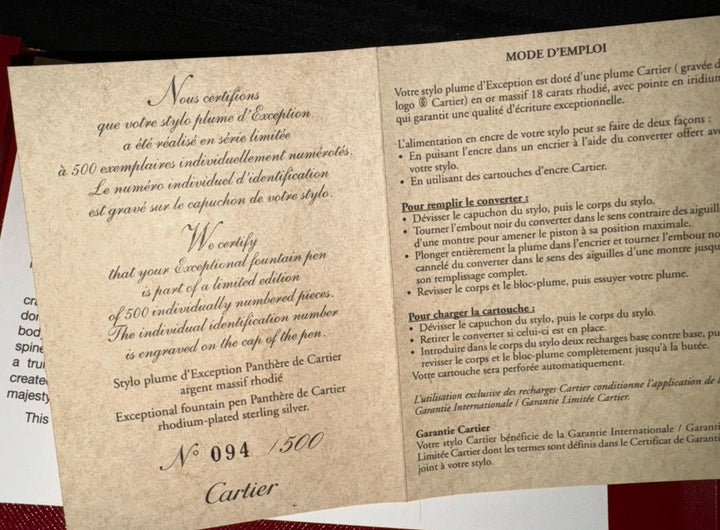 Nous certifions
que votre stylo plume d'Exception
a été réalisé en série limitée
à 500 exemplaires individuellement numérotés.
Le numéro individuel d'identification
est gravé sur le capuchon de votre stylo.
We certify
that your Exceptional fountain pen
is part of a limited edition
of 500 individually numbered pieces.
The individual identification number
is engraved on the cap of the pen.
Stylo plume d'Exception Panthère de Cartier
argent massif rhodié
Exceptional fountain pen Panthère de Cartier
rhodium-plated sterling silver.
N° 094 /500
Cartier
MODE D'EMPLOI
Votre stylo plume d'Exception est doté d'une plume Cartier ( gravée d
logo Cartier) en or massif 18 carats rhodié, avec pointe en iridium
qui garantit une qualité d'écriture exceptionnelle.
L'alimentation en encre de votre stylo peut se faire de deux façons :
• En puisant l'encre dans un encrier à l'aide du converter offert ave
votre stylo.
• En utilisant des cartouches d'encre Cartier.
Pour remplir le converter :
• Dévisser le capuchon du stylo, puis le corps du stylo.
• Tourner l'embout noir du converter dans le sens contraire des aiguill
d'une montre pour amener le piston à sa position maximale.
• Plonger entièrement la plume dans l'encrier et tourner l'embout no
cannelé du converter dans le sens des aiguilles d'une montre jusqu
son remplissage complet.
• Revisser le corps et le bloc-plume, puis essuyer votre plume.
Pour charger la cartouche :
• Dévisser le capuchon du stylo, puis le corps du stylo.
• Retirer le converter si celui-ci est en place.
• Introduire dans le corps du stylo deux recharges base contre base, pu
revisser le corps et le bloc-plume complètement jusqu'à la butée.
Votre cartouche sera perforée automatiquement.
L'utilisation exclusive des recharges Cartier conditionne l'application de l
Garantie Internationale / Garantie Limitée Cartier.
Garantie Cartier
Votre stylo Cartier bénéficie de la Garantie Internationale / Garanti
Limitée Cartier dont les termes sont définis dans le Certificat de Garanti
joint à votre stylo.
cra
don
body
spine
a tru
create
majesty
This